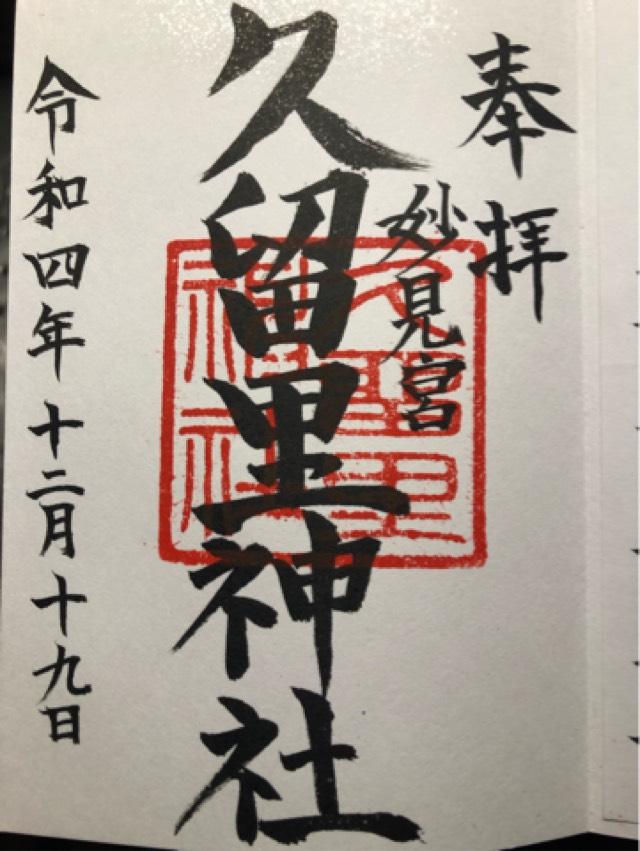 奉拝
妙見宮
久留里神社
令和四年十二月十九日
久留里
神社